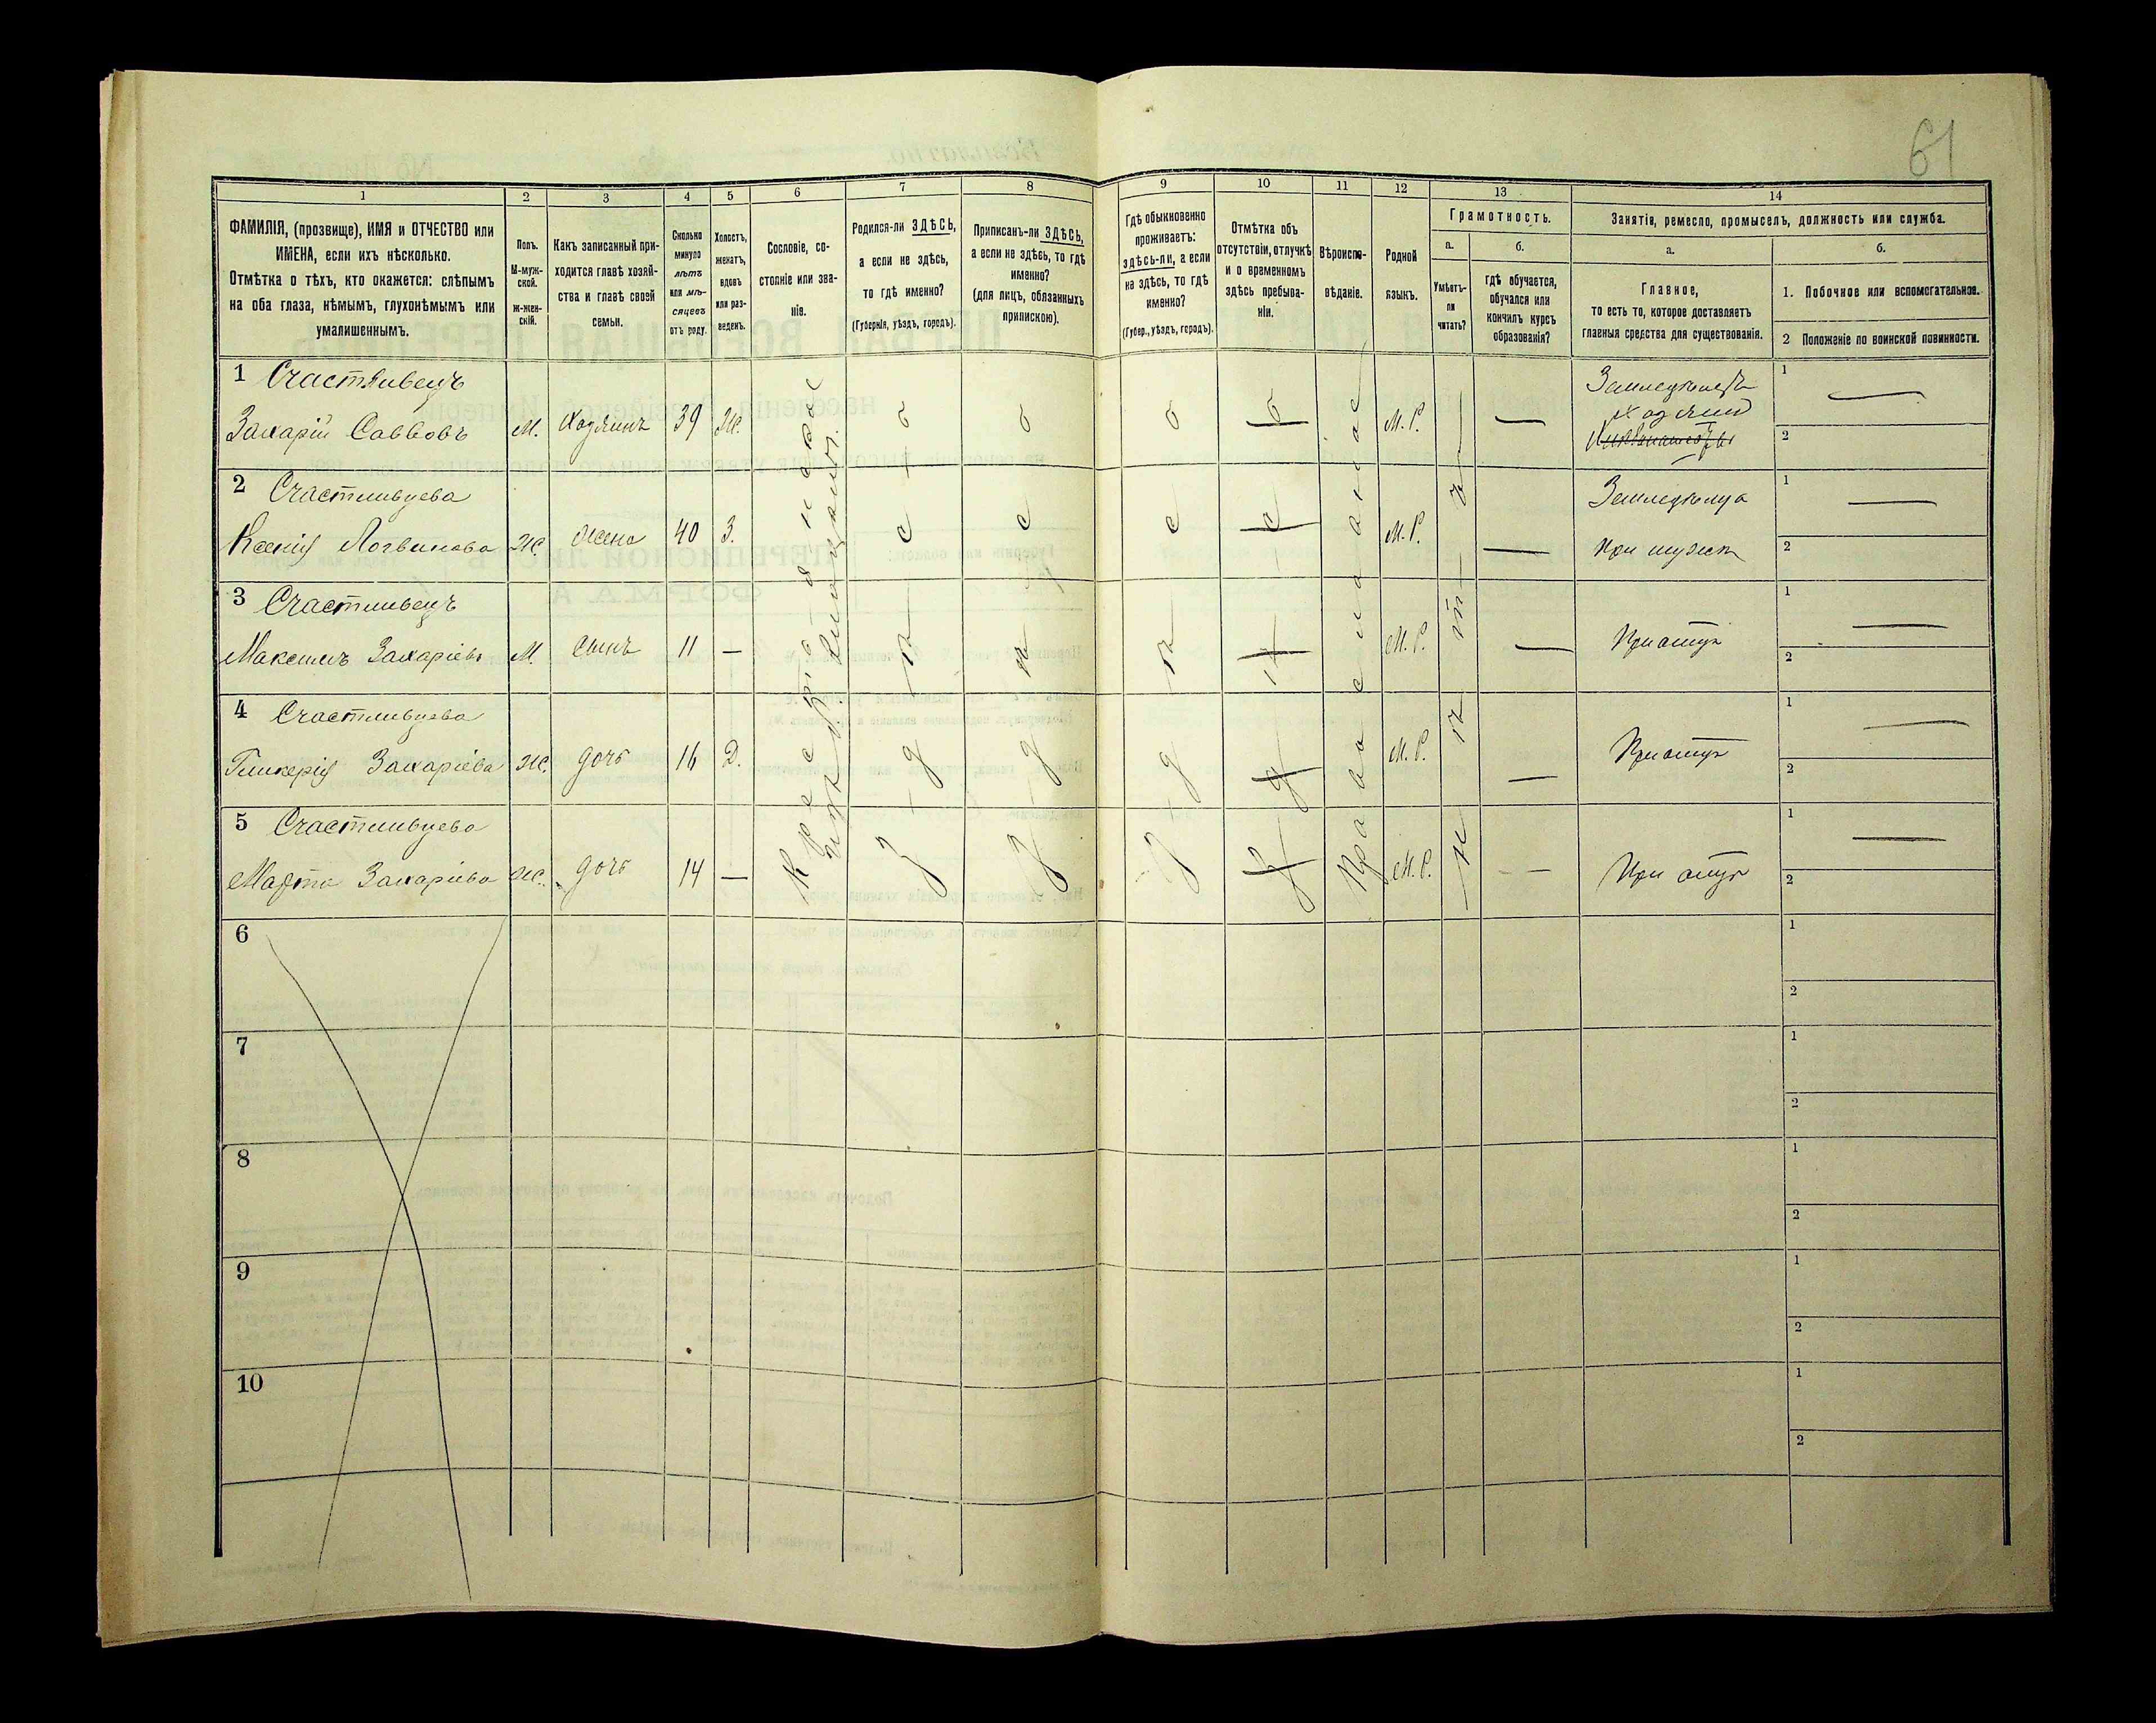 61
1 2 3 4 5 6 7 8 9 10 11 12 13 14
ФАМИЛІЯ, (прозвище), ИМЯ и ОТЧЕСТВО или
ИМЕНА, если ихъ нѣсколько.
Отмѣтка о тѣхъ, кто окажется: слѣпымъ
на оба глаза, нѣмымъ, глухонѣмымъ или
умалишеннымъ.
Полъ.
М-муж-
ской.
Ж-жен-
скій.
Какъ записанный при-
ходится главѣ хозяй-
ства и главѣ своей
семьи.
Сколько
минуло
лѣтъ
или мѣ-
сяцевъ
отъ роду.
Холостъ,
женатъ,
вдовъ
или раз-
веденъ.
Сословіе, со-
стояніе или зва-
ніе.
Родился-ли ЗДѢСЬ,
а если не здѣсь,
то гдѣ именно?
(Губернія, уѣздъ, городъ).
Приписанъ-ли ЗДѢСЬ,
а если не здѣсь, то гдѣ
именно?
(для лицъ, обязанныхъ
припискою).
Гдѣ обыкновенно
проживаетъ:
здѣсь-ли, а если
не здѣсь, то гдѣ
именно?
(Губер., уѣздъ, городъ).
Отмѣтка объ
отсутствіи, отлучкѣ
и о временномъ
здѣсь пребыва-
ніи.
Вѣроиспо-
вѣданіе.
Родной
языкъ.
Грамотность.
а.
Умѣетъ-
ли
читать?
б.
гдѣ обучается,
обучался или
кончилъ курсъ
образованія?
Занятія, ремесло, промыселъ, должность или служба.
а.
Главное,
то есть то, которое доставляетъ
главныя средства для существованія.
б.
1. Побочное или вспомогательное.
2 Положеніе по воинской повинности.
1 Счастливецъ
Захарій Саввовъ М. Хозяинъ 39 Ж. М.Р. Земледѣлецъ
хозяинъ
1
2
2 Счастливцева
Ксенія Логвинова Ж. жена 40 З. М.Р. Земледѣлица
При мужѣ
1
2
3 Счастливецъ
Максимъ Захаріевъ М. Сынъ 11 — М.Р. При отцѣ
1
2
4 Счастливцева
Гликерія Захаріева Ж. дочь 16 Д. М.Р. При отцѣ
1
2
5 Счастливцева
Марта Захаріева Ж. дочь 14 — М.Р. При отцѣ
1
2
здѣсь
здѣсь
здѣсь
здѣсь
Православное
нѣтъ
6 1
2
7 1
2
8 1
2
9 1
2
10 1
2